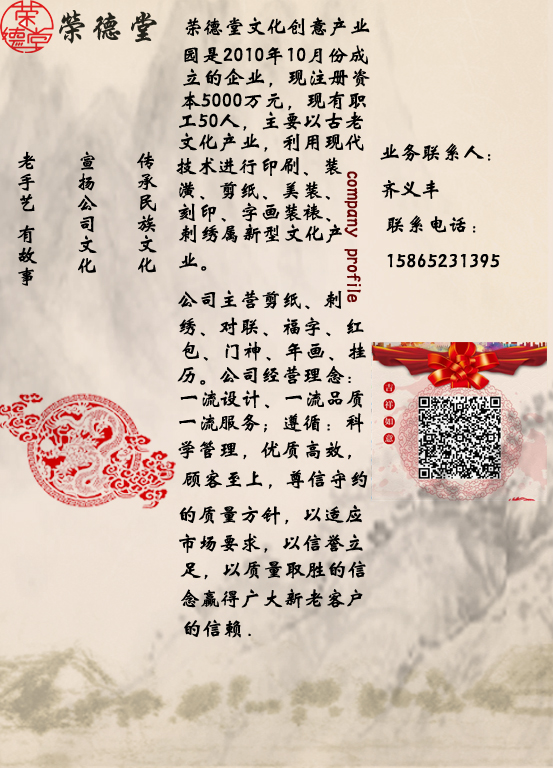 荣德堂
荣德堂
老手艺 有故事
宣扬公司文化
传承民族文化
荣德堂文化创意产业
园是2010年10月份成
立的企业，现注册资
本5000万元，现有职
工50人，主要以古老
文化产业，利用现代
技术进行印刷、装
潢、剪纸、美装、
刻印、字画装裱、
刺绣属新型文化产
业。
company profile
公司主营剪纸、刺
绣、对联、福字、红
包、门神、年画、挂
历。公司经营理念：
一流设计、一流品质
一流服务；遵循：科
学管理，优质高效，
顾客至上，尊信守约
的质量方针，以适应
市场要求，以信誉立
足，以质量取胜的信
念赢得广大新老客户
的信赖.
业务联系人：
齐义丰
联系电话：
15865231395
吉祥如意